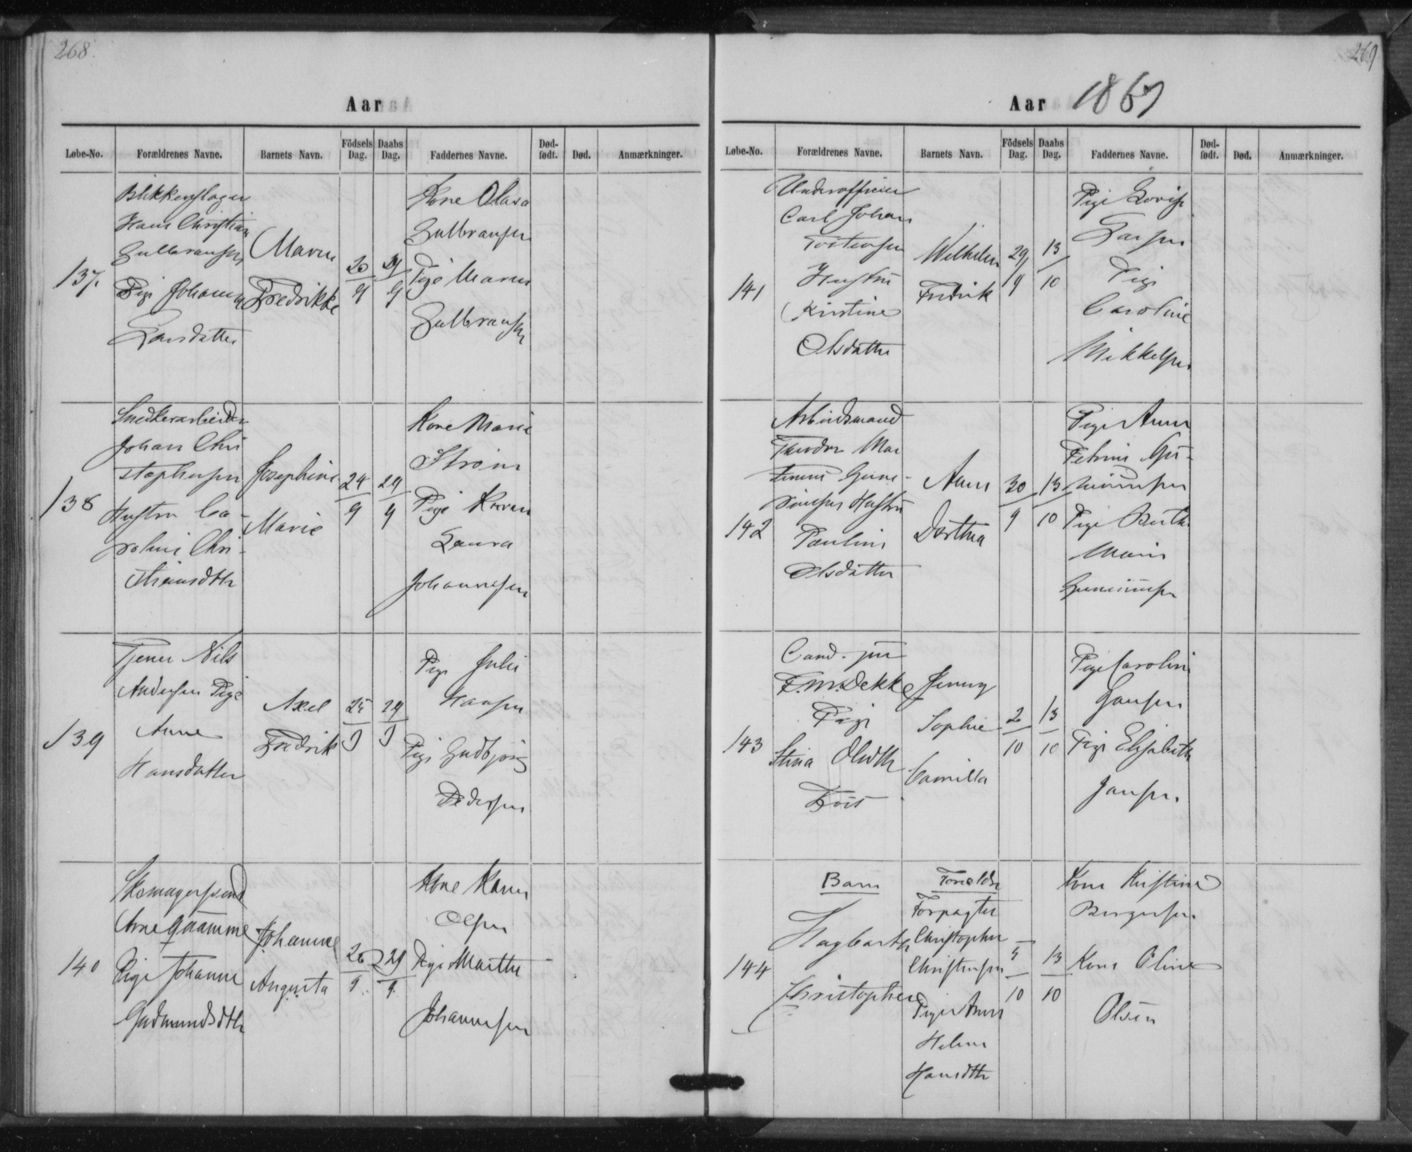 268.
Aar
Løbe-No. Forældrenes Navne. Barnets Navn. Fødsels Dag. Daabs Dag. Faddernes Navne. Død-født. Død. Anmærkninger.
137.
Blikkenslager
Hans Christian
Gulbransen
Pige Johanne
Larsdatter
Maren
Fredrikke
20/9
29/9
Kone Olava
Gulbransen
Pige Maren
Gulbransen
138
Snedkerarbeider
Johan Chri
stophersen
Hustru Ca-
roline Chri-
stiansdtr
Josephine
Marie
24/9
29/9
Kone Marie
Strøm
Pige Karen
Laura
Johannesen
139
Tjener Nils
Andersen Pige
Anne
Hansdatter
Axel
Fredrik
25/9
29/9
Pige Julie
Hansen
Pige Gudbjørg
Pedersen
140
Skomagersvend
Arne Qvamme
Pige Johanne
Gudmundsdtr
Johanne
Augusta
26/9.
29/9.
Kone Karen
Olsen
Pige Marthe
Johannesen
269
Aar 1867
Løbe-No. Forældrenes Navne. Barnets Navn. Fødsels Dag. Daabs Dag. Faddernes Navne. Død-født. Død. Anmærkninger.
141
Underofficier
Carl Johan
Torstensen
Hustru
Kirstine
Olsdatter
Wilhelm
Fredrik
29/9
13/10
Pige Lovise
Larsen
Pige
Caroline
Mikkelsen
142
Arbeidsmand
Theodor Mar
Hustru
Pauline
Olsdatter
Anna
Dorthea
30/9
13/10
Pige Anna
Pige Berth.
Marie
143
Cand. jur
F. M. Dekke
Pige
Stina Olsdtr
Jenny
Sophie
Camilla
2/10
13/10
Pige Caroline
Jansen
Pige Elisabeth
Jansen.
144
Barn
Hagbarth
Christopher
Forældre
Forpagter
Christopher
Christensen
Pige Anna
Helene
Hansdtr
5/10
13/10
Kone Kristine
Børgersen
Kone Oline
Olsen